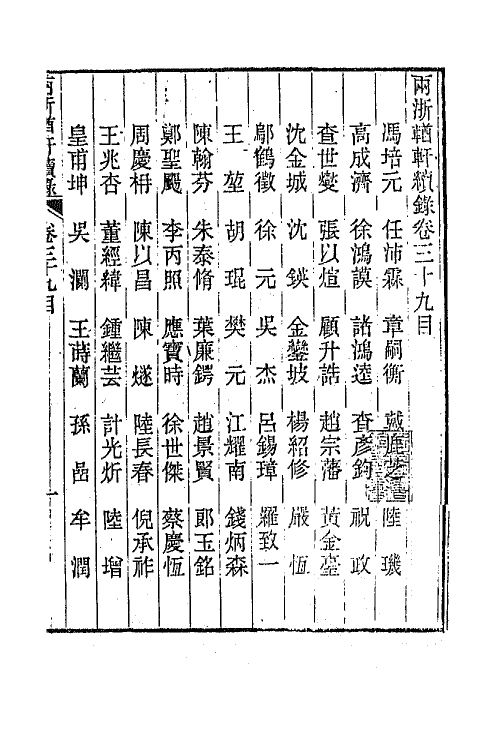 兩浙輶軒續錄卷三十九目
馮培元 任沛霖 章嗣衡 戴 陸璣
高成濟 徐鴻謨 諸鴻逵 查彥鈞 祝政
查世燮 張以煊 顧升誥 趙宗藩 黃金臺
沈金城 沈鍈 金鑾坡 楊紹修 嚴恆
鄔鶴徵 徐元 吳杰 呂錫璋 羅致一
王堃 胡琨 樊元 江耀南 錢炳森
陳翰芬 朱泰脩 葉廉鍔 趙景賢 郎玉銘
鄭聖颺 李丙照 應寶時 徐世傑 蔡慶恆
周慶枏 陳以昌 陳燧 陸長春 倪承祚
王兆杏 董經緯 鍾繼芸 計光炘 陸增
皇甫坤 吳瀾 王蒔蘭 孫嵒 牟潤
兩浙輶軒續錄 卷三十九目 一